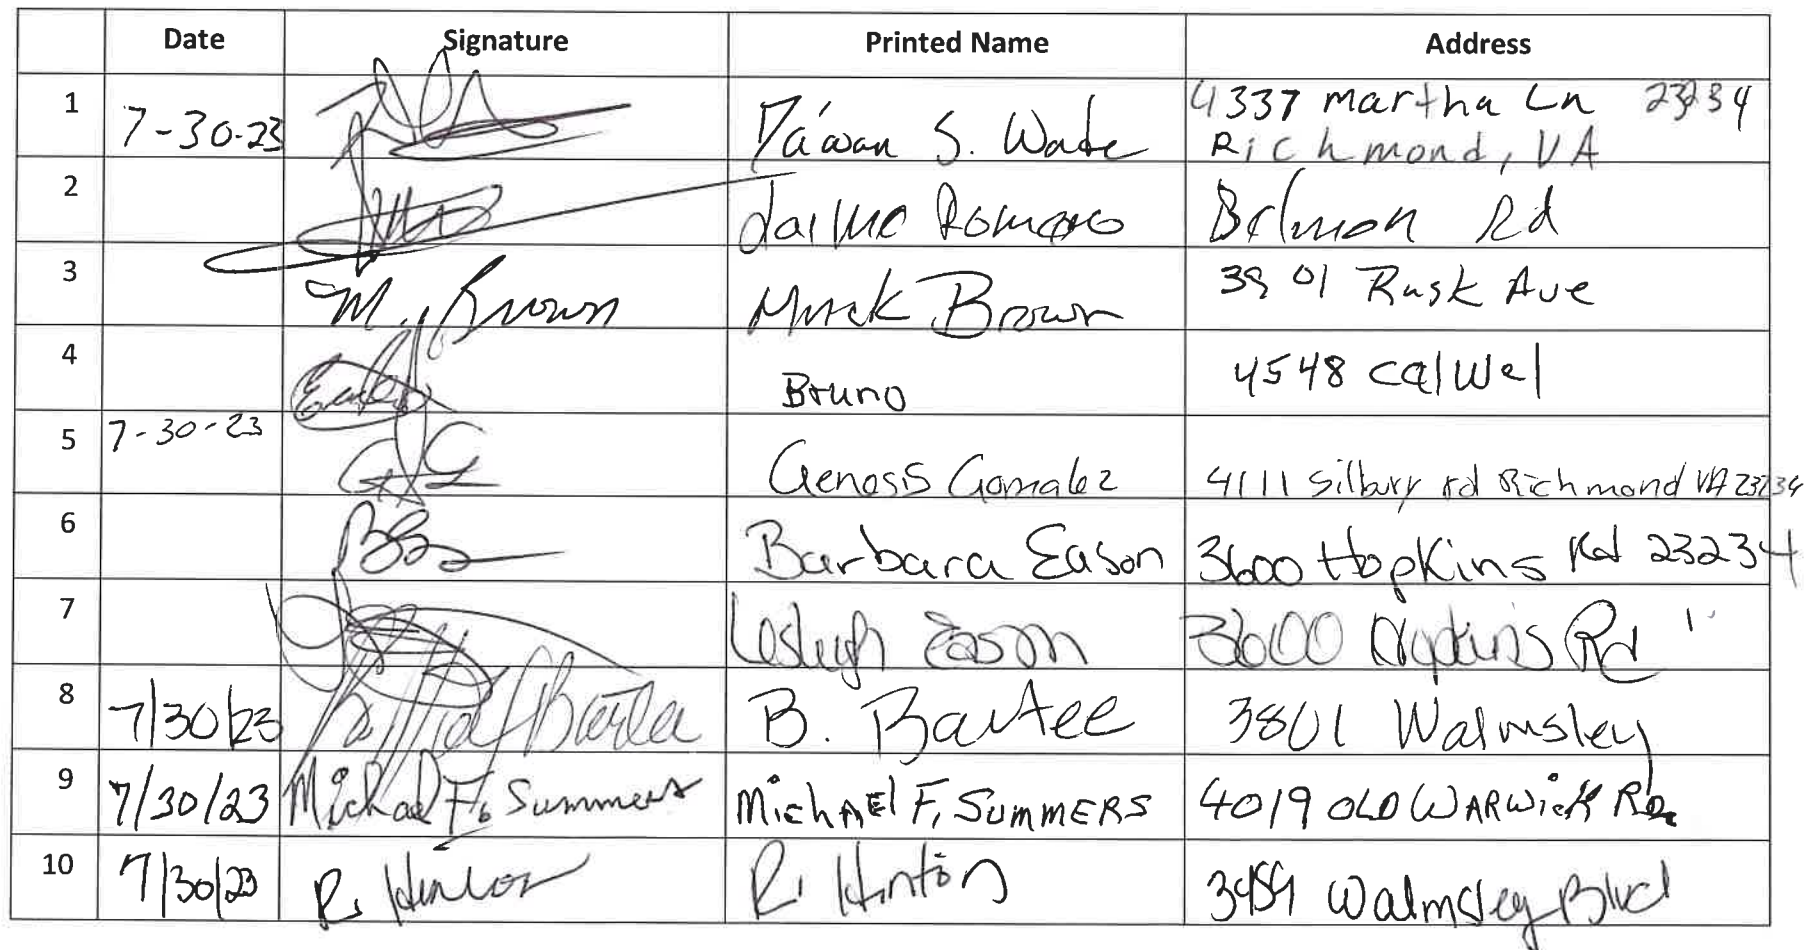 Date Signature Printed Name Address
1 7-30-23 Da'wan S. Wade 4337 Martha Ln 23234
Richmond, VA
2 Jaime Romero Belmon Rd
3 M. Brown Mack Brown 3901 Rusk Ave
4 Bruno 4548 calwel
5 7-30-23 GG Genesis Gomalez 4111 Silbury rd Richmond VA 23234
6 Barbara Eason 3600 Hopkins Rd 23234
7 Lesleigh Eason 3600 Hopkins Rd "
8 7/30/23 B. Bartee 3801 Walmsley
9 7/30/23 Michael F. Summers MichAEl F. SUMMERS 4019 OLD WARWick Rd
10 7/30/23 R. Hinton R. Hinton Walmsley Blvd